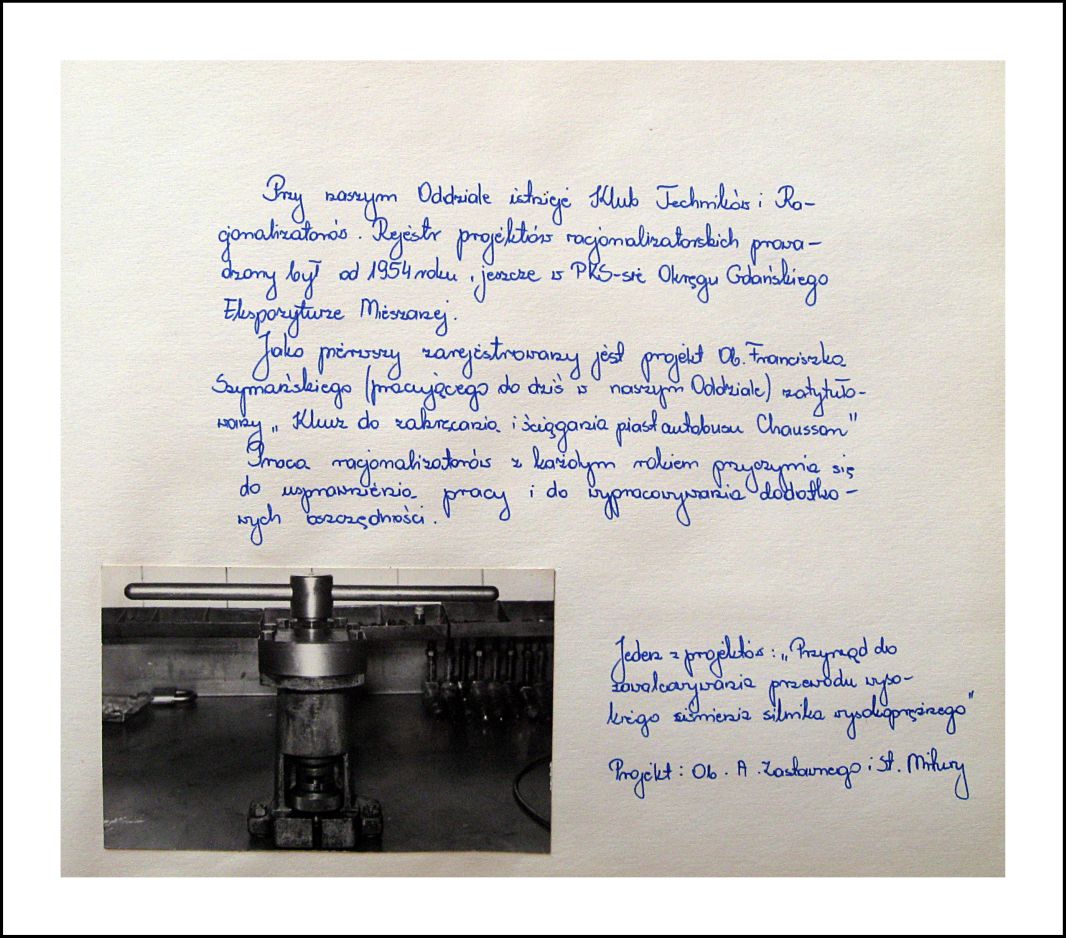 Przy naszym Oddziale istnieje Klub Techników i Ra-
cjonalizatorów. Rejestr projektów racjonalizatorskich prowa-
dzony był od 1954 roku, jeszcze w PKS-sie Okręgu Gdańskiego
Ekspozyturze Mieszanej.
Jako pierwszy zarejestrowany jest projekt Ob. Franciszka
Szymańskiego (pracującego do dziś w naszym Oddziale) zatytuło-
wany „Klucz do zakręcania i ściągania piast autobusu Chausson"
Praca racjonalizatorów z każdym rokiem przyczynia się
do usprawnienia pracy i do wypracowywania dodatko-
wych oszczędności.
Jeden z projektów: „Przyrząd do
zawalcowywania przewodu wyso-
kiego ciśnienia silnika wysokoprężnego"
Projekt: Ob. A. Zastawnego i St. Mikury